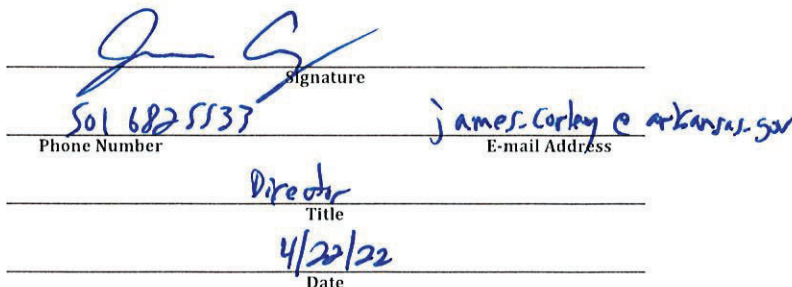 Signature
501 6825533 james.corley@arkansas.gov
Phone Number E-mail Address
Director
Title
4/22/22
Date